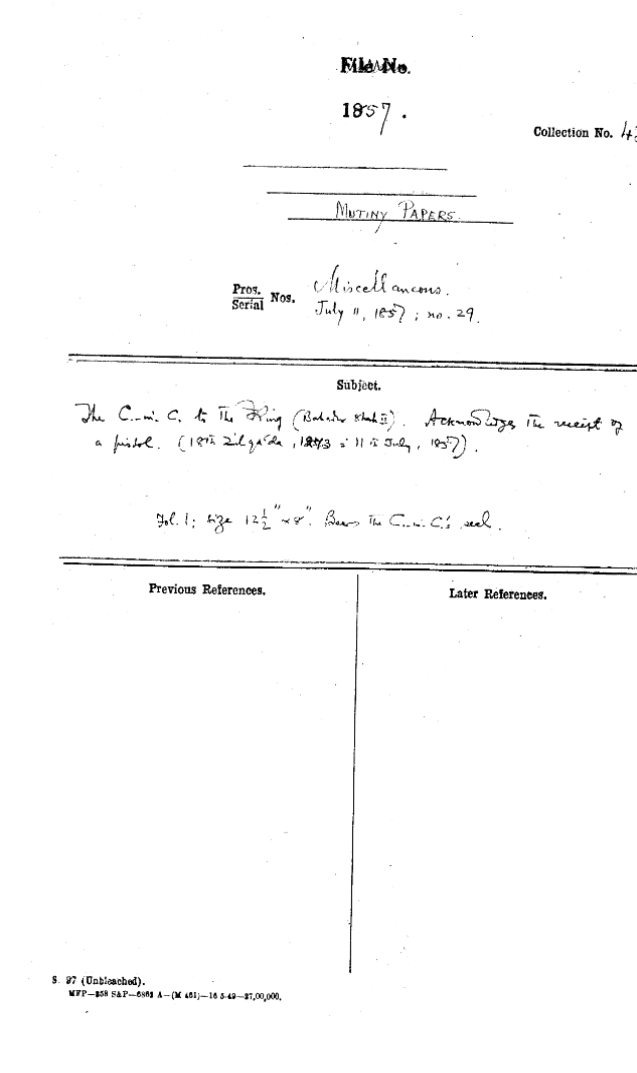 File No.
1857.
Collection No. 4
MUTINY PAPERS.
Pros.
Serial Nos.
Miscellaneous.
July 11, 1857; no. 29.
Subject.
The C.-in. C. to the King (Bahadur Shah II). Acknowledges the receipt of
a pistol. (18th Zilqa'da, 1273 = 11th July, 1857).
Fol. 1; size 12½" × 8". Bears the C.-in. C.'s seal.
Previous References.
Later References.
S. 97 (Unbleached).
MFP—858 S&P—6863 A—(M 461)—16-5-49—27,00,000.